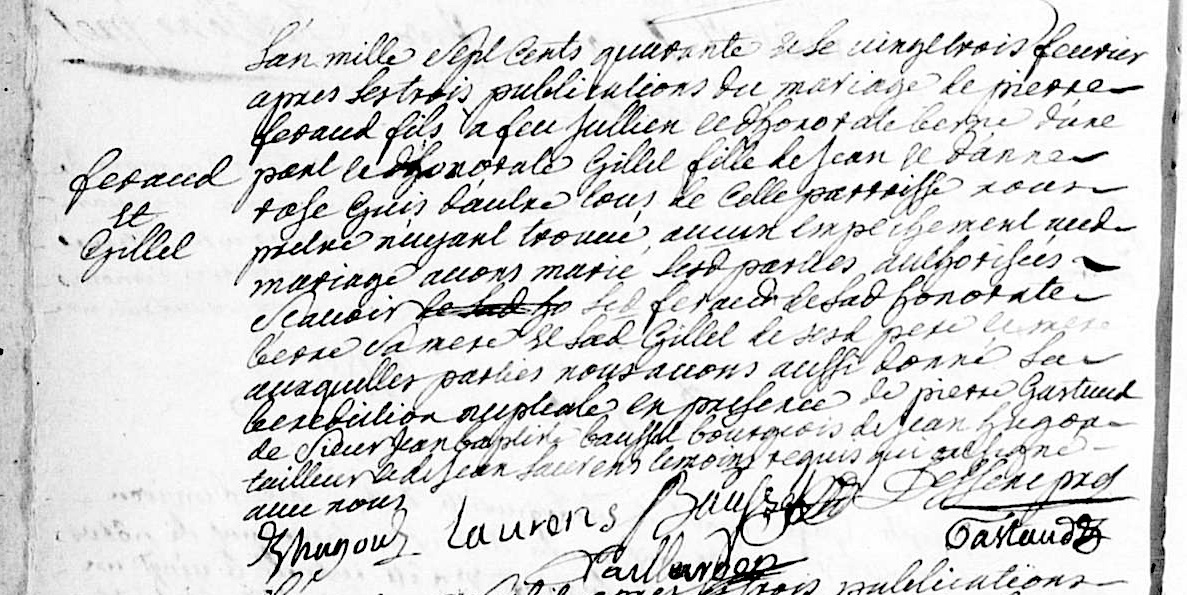 L'an mille sept cents quarante et le vingt trois feuvrier
apres les trois publications du mariage de pierre
feraud fils a feu Jullien et d'honorate berre d'une
part et d'honorate Gillet fille de Jean et d'anne
rose Guis d'autre tous de cette parroisse nous
pretre n'ayant trouué aucun empechement aud
mariage auons marié lesd parties authorisées
scauoir led feraud de lad honorate
berre sa mere et lad Gillet de sesd pere et mere
auxquelles parties nous auons aussi donné la
benediction nuptiale en presence de pierre Gastaud
de Sieur Jean baptiste baussel bourgeois de Jean hugon
tailleur et de Jean Laurens temoins requis qui ont signé
auec nous
feraud
et
Gillet
J hugon Laurens Baussel
Gastaud
apres les trois publications